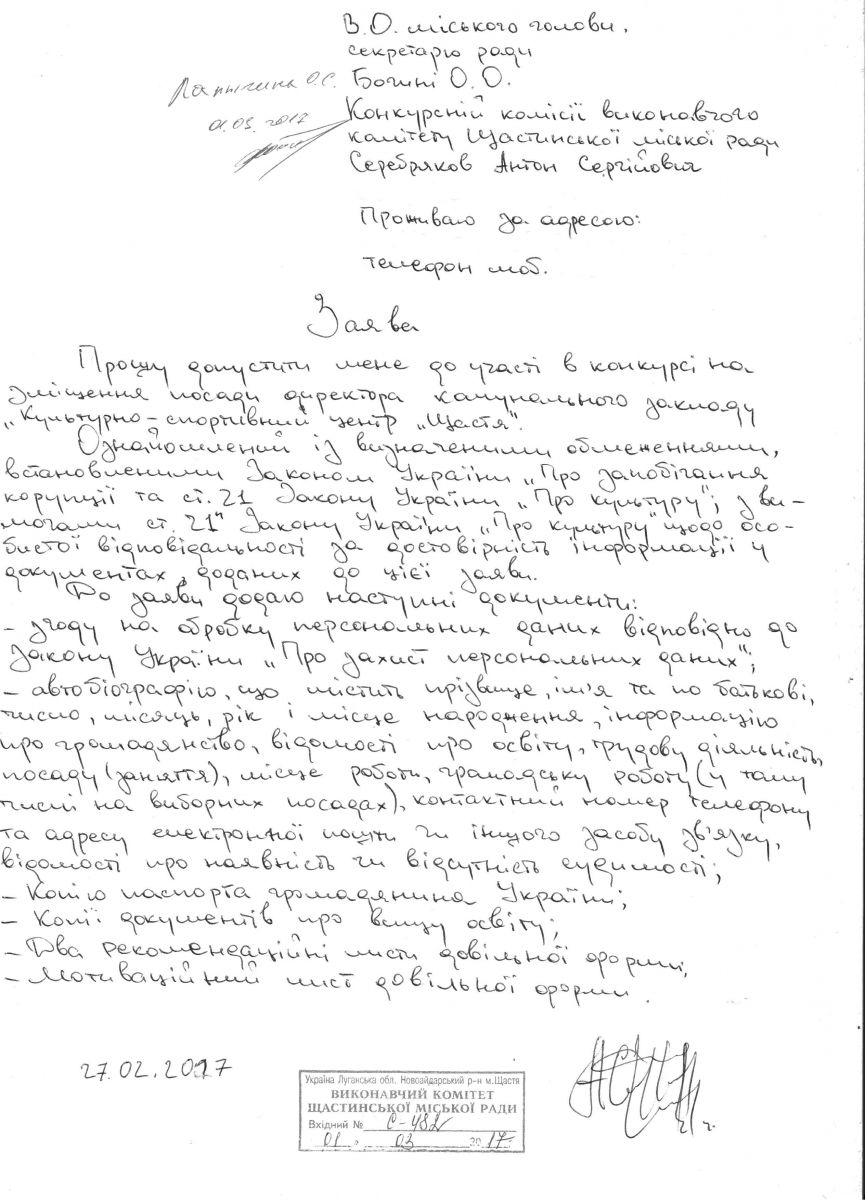 В.О. міського голови,
секретарю ради
Богині О.О.
Лапыгина О.С.
01.03.2017
Конкурсній комісії виконавчого
комітету Щастинської міської ради
Серебряков Антон Сергійович
Проживаю за адресою:
телефон моб.
Заява
Прошу допустити мене до участі в конкурсі на
зміщення посади директора комунального закладу
„Культурно-спортивний центр „Щастя".
Ознайомлений із визначеними обмеженнями,
встановленими Законом України „Про запобігання
корупції та ст. 21 Закону України „Про культуру"; з ви-
могами ст. 21" Закону України „Про культуру" щодо осо-
бистої відповідальності за достовірність інформації у
документах, доданих до цієї заяви.
До заяви додаю наступні документи:
- згоду на обробку персональних даних відповідно до
Закону України „Про захист персональних даних";
- автобіографію, що містить прізвище, ім'я та по батькові,
число, місяць, рік і місце народження, інформацію
про громадянство, відомості про освіту, трудову діяльність,
посаду (заняття), місце роботи, громадську роботу (у тому
числі на виборних посадах), контактний номер телефону
та адресу електронної пошти чи іншого засобу зв'язку,
відомості про наявність чи відсутність судимості;
- Копію паспорта громадянина України;
- Копії документів про вищу освіту;
- Два рекомендаційні листи довільної форми;
- Мотиваційний лист довільної форми.
27.02.2017
Україна Луганська обл. Новоайдарський р-н м.Щастя
ВИКОНАВЧИЙ КОМІТЕТ
ЩАСТИНСЬКОЇ МІСЬКОЇ РАДИ
Вхідний № С-482
01 " 03 2017